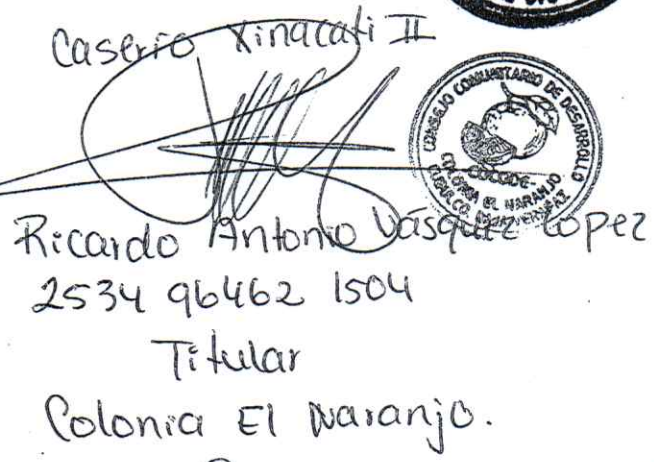 Caserio Xinacati II
CONSEJO COMUNITARIO DE DESARROLLO
-COCODE-
COLONIA EL NARANJO
Ricardo Antonio Vásquez Lopez
2534 96462 1504
Titular
Colonia El Naranjo.